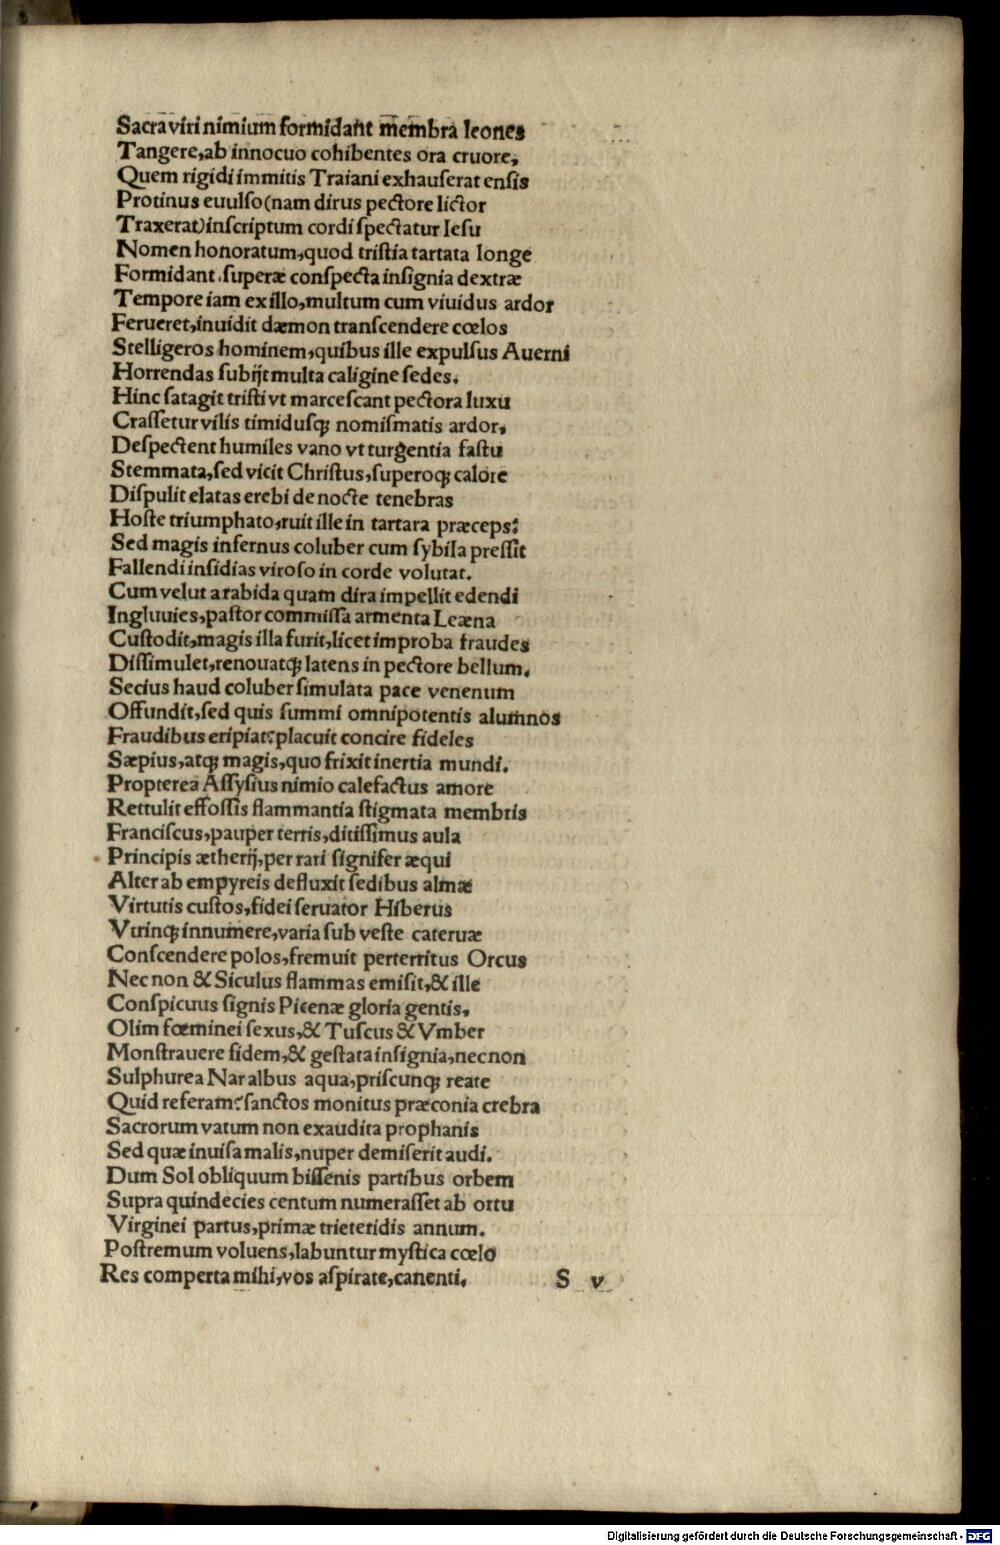 Sacra viri nimium formidāt mēmbra leones
Tangere,ab innocuo cohibentes ora cruore,
Quem rigidi immitis Traiani exhauſerat enſis
Protinus euulſo(nam dirus pectore lictor
Traxerat)inſcriptum cordi ſpectatur Ieſu
Nomen honoratum,quod triſtia tartata longe
Formidant.ſuperæ conſpecta inſignia dextræ
Tempore iam ex illo,multum cum viuidus ardor
Ferueret,inuidit dæmon tranſcendere cœlos
Stelligeros hominem,quibus ille expulſus Auerni
Horrendas ſubijt multa caligine ſedes.
Hinc ſatagit triſti vt marceſcant pectora luxu
Craſſetur vilis timiduſqꝫ nomiſmatis ardor,
Deſpectent humiles vano vt turgentia faſtu
Stemmata,ſed vicit Chriſtus,ſuperoqꝫ calore
Diſpulit elatas erebi de nocte tenebras
Hoſte triumphato,ruit ille in tartara præceps:
Sed magis infernus coluber cum ſybila preſſit
Fallendi inſidias viroſo in corde volutat.
Cum velut a rabida quam dira impellit edendi
Ingluuies,paſtor commiſſa armenta Leæna
Cuſtodit,magis illa furit,licet improba fraudes
Diſſimulet,renouatqꝫ latens in pectore bellum.
Secius haud coluber ſimulata pace venenum
Offundit,ſed quis ſummi omnipotentis alumnos
Fraudibus eripiat?placuit concire fideles
Sæpius,atqꝫ magis,quo frixit inertia mundi.
Propterea Aſſyſius nimio calefactus amore
Rettulit effoſſis flammantia ſtigmata membris
Franciſcus,pauper terris,ditiſſimus aula
Principis ætherij,per rari ſignifer æqui
Alter ab empyreis defluxit ſedibus almæ
Virtutis cuſtos,fidei ſeruator Hiberus
Vtrinqꝫ innumere,varia ſub veſte cateruæ
Conſcendere polos,fremuit perterritus Orcus
Nec non & Siculus flammas emiſit,& ille
Conſpicuus ſignis Picenæ gloria gentis,
Olim fœminei ſexus,& Tuſcus & Vmber
Monſtrauere fidem,& geſtata inſignia,necnon
Sulphurea Nar albus aqua,priſcunqꝫ reate
Quid referam?ſanctos monitus præconia crebra
Sacrorum vatum non exaudita prophanis
Sed quæ inuiſa malis,nuper demiſerit audi.
Dum Sol obliquum biſſenis partibus orbem
Supra quindecies centum numeraſſet ab ortu
Virginei partus,primæ trieteridis annum.
Poſtremum voluens,labuntur myſtica cœlo
Res comperta mihi,vos aſpirate,canenti. S v
Digitalisierung gefördert durch die Deutsche Forschungsgemeinschaft - DFG